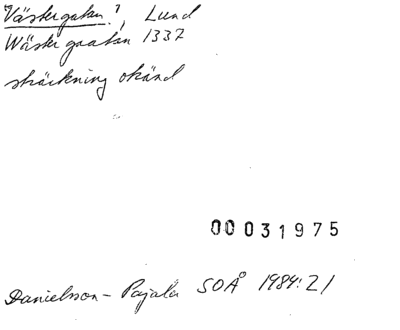 Västergatan?, Lund
Wäster gaatan 1337
sträckning okänd
00031975
Danielsson-Pajala SOÅ 1984:21